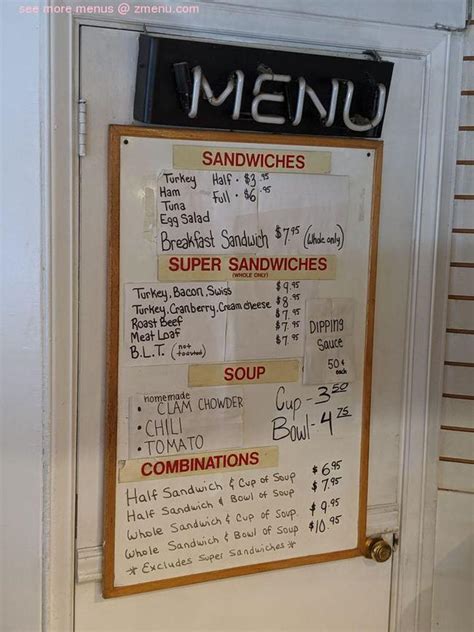 see more menus @ zmenu.com
MENU
SANDWICHES
Turkey Half - $3.95
Ham Full - $6.95
Tuna
Egg Salad
Breakfast Sandwich $7.95 (Whole only)
SUPER SANDWICHES
(WHOLE ONLY)
Turkey, Bacon, Swiss $9.95
Turkey, Cranberry, Cream cheese $8.95
Roast Beef $7.95
Meat Loaf $7.95
B.L.T. (not toasted) $7.95
DIPPING
Sauce
50¢
each
SOUP
homemade
• CLAM CHOWDER
• CHILI
• TOMATO
Cup - 3.50
Bowl - 4.75
COMBINATIONS
Half Sandwich & Cup of Soup $6.95
Half Sandwich & Bowl of Soup $7.95
Whole Sandwich & Cup of Soup $9.95
Whole Sandwich & Bowl of Soup $10.95
* Excludes Super Sandwiches *